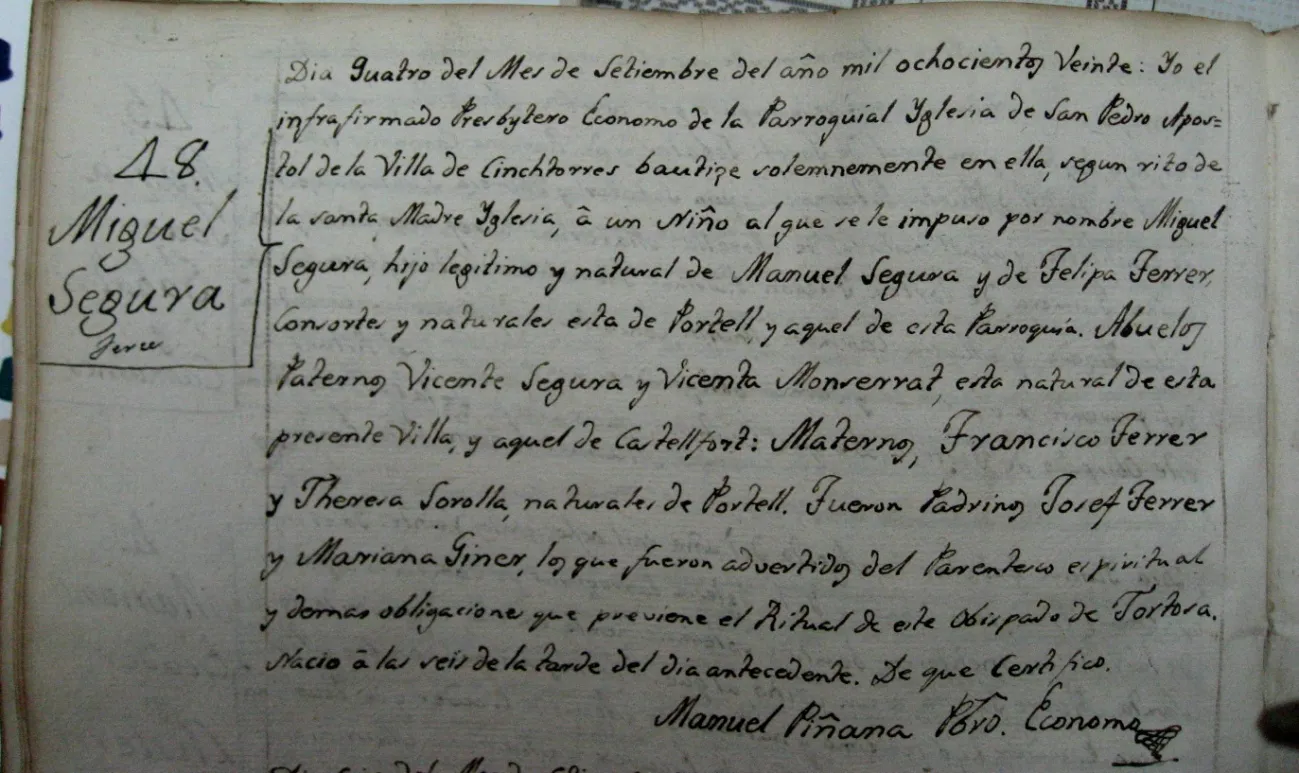 48.
Miguel
Segura
Ferrer
Dia Quatro del Mes de Setiembre del año mil ochocientos Veinte: Yo el
infrafirmado Presbytero Economo de la Parroquial Yglesia de San Pedro Apos=
tol de la Villa de Cinchtorres bautize solemnemente en ella, segun rito de
la santa Madre Yglesia, â un Niño al que se le impuso por nombre Miguel
Segura, hijo legitimo y natural de Manuel Segura y de Felipa Ferrer,
Consortes y naturales esta de Portell y aquel de esta Parroquia. Abuelos
Paternos Vicente Segura y Vicenta Monserrat, esta natural de esta
presente Villa, y aquel de Castellfort: Maternos, Francisco Ferrer
y Theresa Sorolla, naturales de Portell. Fueron Padrinos Josef Ferrer
y Mariana Giner, los que fueron advertidos del Parentesco espiritual
y demas obligaciones que previene el Ritual de este Obispado de Tortosa.
Nacio â las seis de la tarde del dia antecedente. De que Certifico.
Manuel Piñana Pbro. Economo